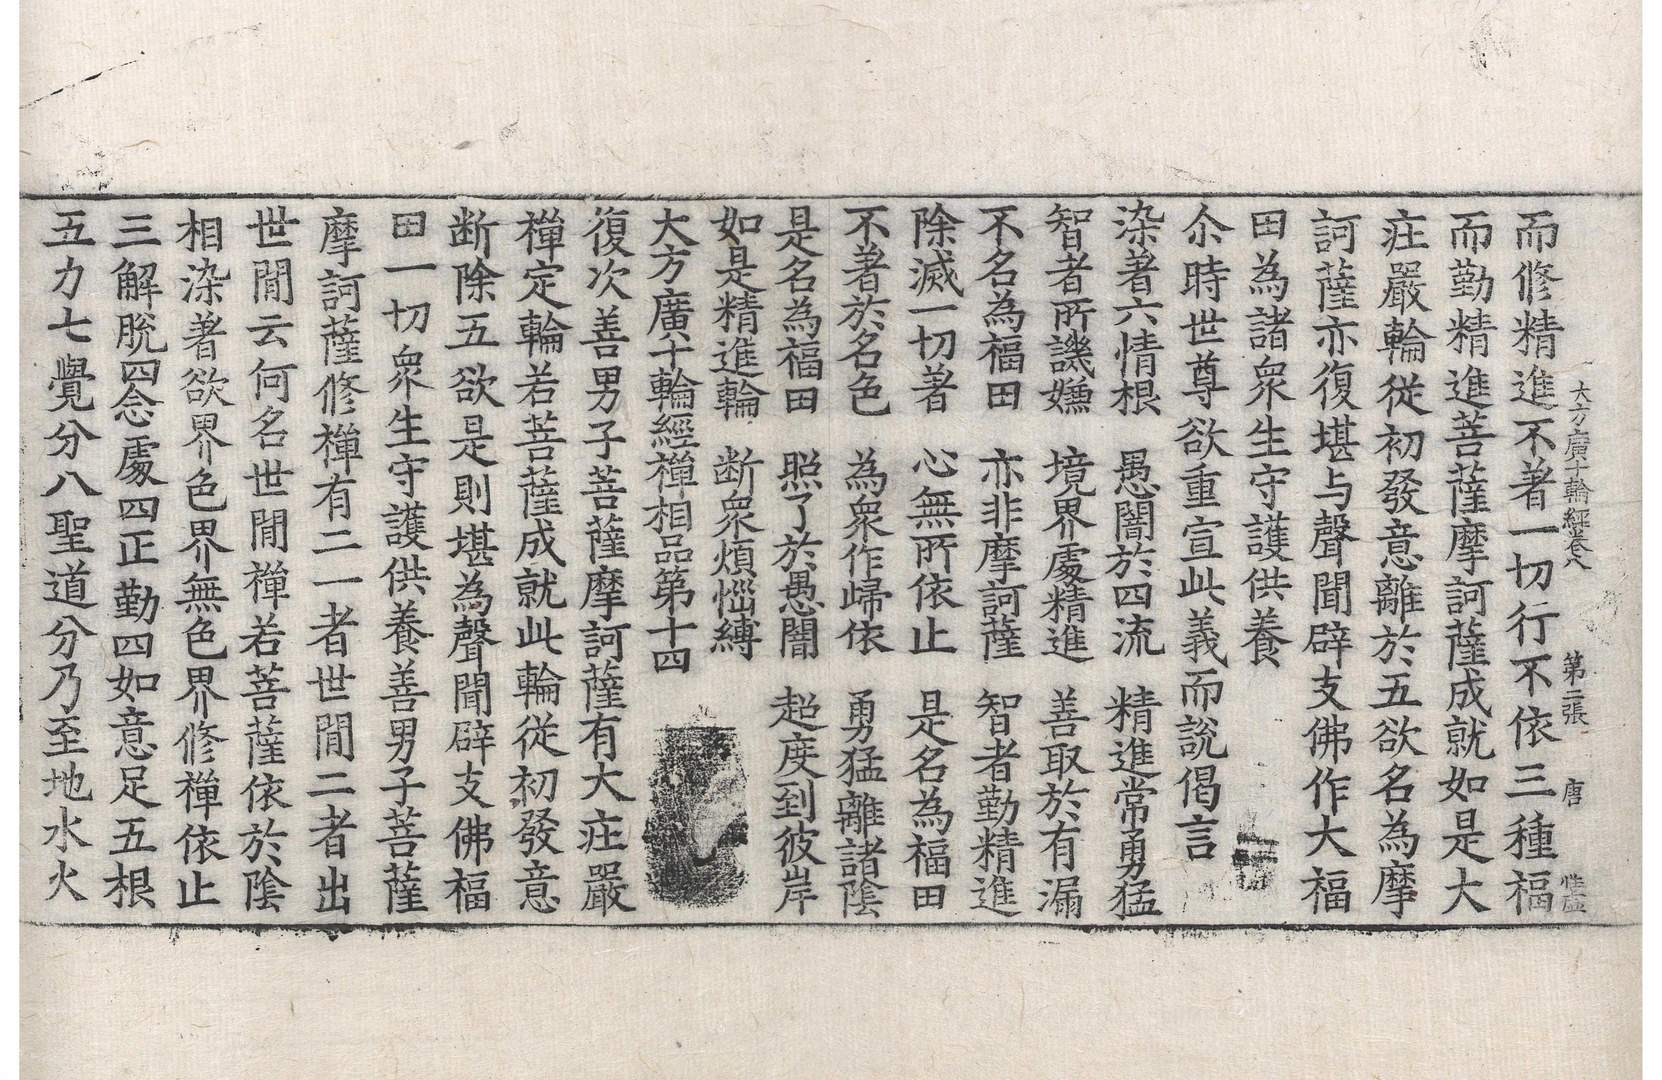 大方廣十輪經卷八 第二張 唐
而修精進不著一切行不依三種福
而勤精進菩薩摩訶薩成就如是大
疘嚴輪從初發意離於五欲名為摩
訶薩亦復堪与聲聞辟支佛作大福
田為諸衆生守護供養
尒時世尊欲重宣此義而說偈言
染著六情根 愚闇於四流 精進常勇猛
智者所譏嫌 境界處精進 善取於有漏
不名為福田 亦非摩訶薩 智者勤精進
除滅一切著 心無所依止 是名為福田
不著於名色 為衆作歸依 勇猛離諸陰
是名為福田 照了於愚闇 超度到彼岸
如是精進輪 断衆煩惱縛
大方廣十輪經禪相品第十四
復次善男子菩薩摩訶薩有大疘嚴
禪定輪若菩薩成就此輪從初發意
断除五欲是則堪為聲聞辟支佛福
田一切衆生守護供養善男子菩薩
摩訶薩修禪有二一者世間二者出
世間云何名世間禪若菩薩依於陰
相染著欲界色界無色界修禪依止
三解脫四念處四正勤四如意足五根
五力七覺分八聖道分乃至地水火